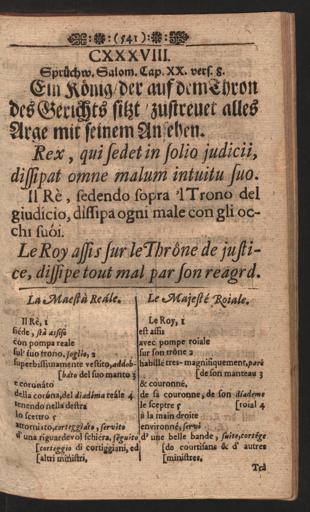 (541)
CXXXVIII.
Sprüchw. Salom. Cap. XX. vers. 8.
Ein König/ der auf dem Thron
des Gerichts sitzt/ zustreuet alles
Arge mit seinem Ansehen.
Rex, qui sedet in solio judicii,
dissipat omne malum intuitu suo.
Il Rè, sedendo sopra 'l Trono del
giudicio, dissipa ogni male con gli oc-
chi suôi.
Le Roy assis sur le Thrône de justi-
ce, dissipe tout mal par son reagrd.
La Maestà Reále.
Il Rè, 1
siéde, stà assiso
con pompa reale
sul' suo trono, soglio, 2
superbissimamente vestito, addob-
[bato del suo manto 3
e coronáto
della coróna, del diadéma reále 4
tenendo nella destra
lo scettro 5
attorniato, corteggiáto, servíto
d' una riguardevol schiéra, séguito
[corteggio di cortiggiani, ed
[altri ministri.
Le Majesté Roiale.
Le Roy, 1
est assis
avec pompe roiale
sur son trône 2
habillé tres-magnifiquement, paré
[de son manteau 3
& couronné,
de sa couronne, de son diademe
le sceptre 5 [roial 4
à la main droite
environné, servi
d' une belle bande, suite, cortége
[de courtisans & d' autres
[ministres.
Trà